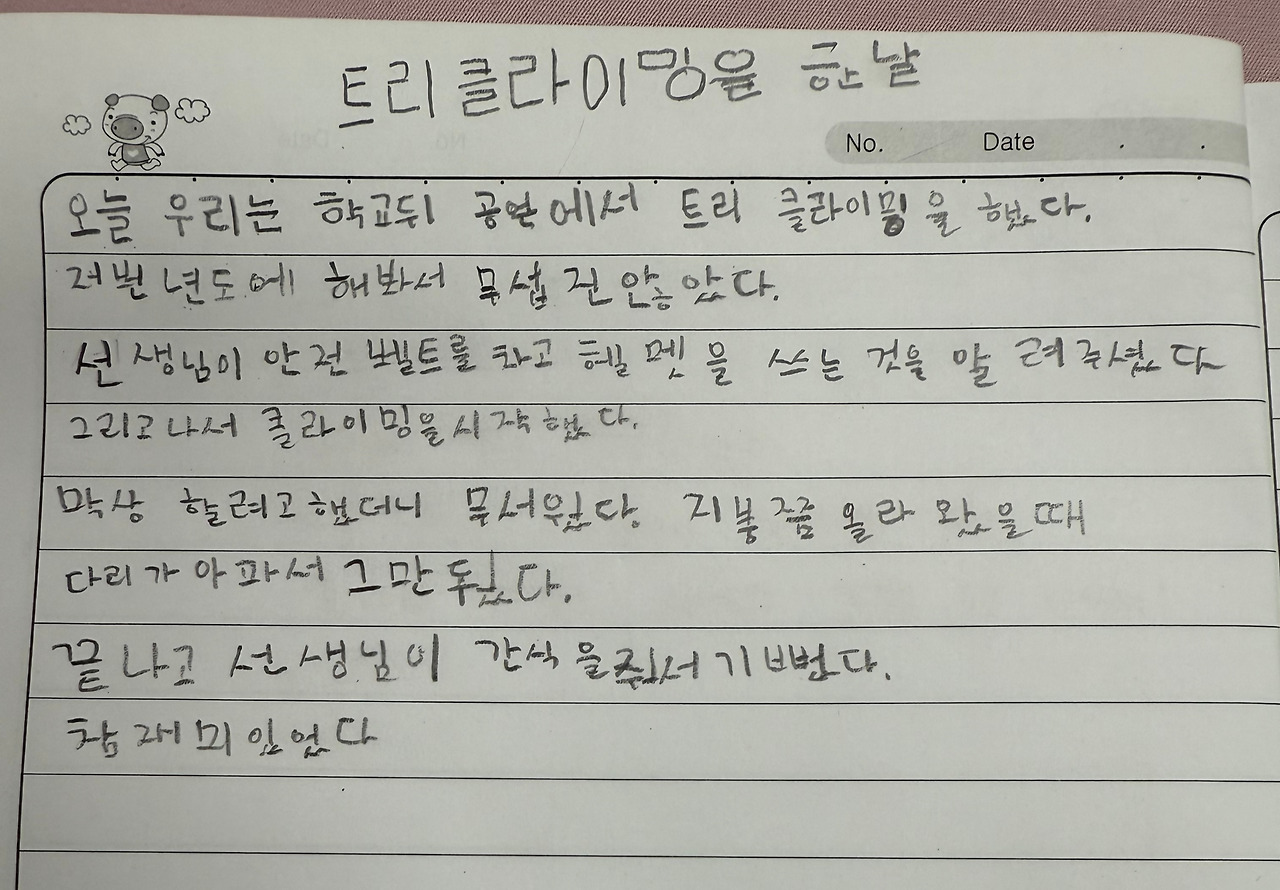 트리클라이밍을 한 날
No. Date . .
오늘 우리는 학교뒤 공연에서 트리 클라이밍을 했다.
저번 년도에 해봐서 무섭진 안않았다.
선생님이 안전 벨트를 차고 헬멧을 쓰는 것을 알려주셨다
그리고나서 클라이밍을 시작했다.
막상 할려고했더니 무서웠다. 지붕쯤 올라 왔을때
다리가 아파서 그만 뒀다.
끝나고 선생님이 간식을 줘서 기뻤다.
참 재미있었다